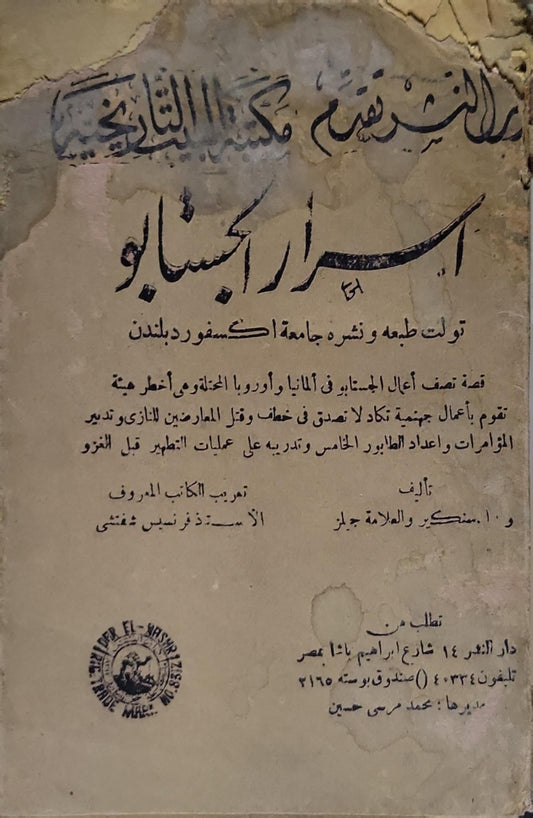 دار النشر تقدم مكتبة الجيب التاريخية
اسرار الجستابو
تولت طبعه ونشره جامعة اكسفورد بلندن
قصة تصف أعمال الجستابو فى ألمانيا وأوروبا المحتلة وهى أخطر هيئة
تقوم بأعمال جهنمية تكاد لا تصدق فى خطف وقتل المعارضين للنازى وتدبير
المؤامرات واعداد الطابور الخامس وتدريبه على عمليات التطهير قبل الغزو
تأليف
و ٠ ا . سنكير والعلامة جيلز
تعريب الكاتب المعروف
الأستاذ فرنسيس شفتشى
تطلب من
دار النشر ١٤ شارع ابراهيم باشا بمصر
تليفون ٤٠٣٣٤ () صندوق بوسته ٢١٦٥
مديرها : محمد مرسى حسين
DER EL-NASHR
TRADE MARK